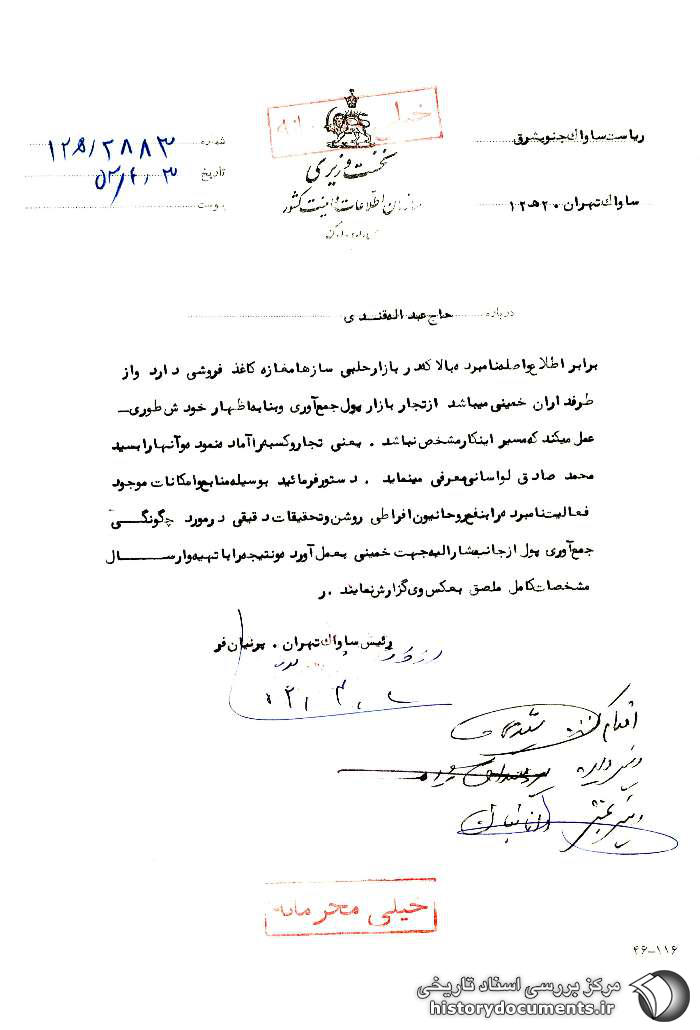 خیلی محرمانه
ریاست ساواک جنوبشرق
ساواک تهران ۲۰ ﻫ ۱۲
نخست وزیری
سازمان اطلاعات و امنیت کشور
شماره ۲۸۸۳/ﻫ۱۲
تاریخ
پیوست
درباره حاج عبداله قندی
برابر اطلاع واصله نامبرده بالا که در بازار حلبی سازها مغازه کاغذ فروشی دارد واز
طرفداران خمینی میباشد از تجار بازار پول جمع آوری وبنا به اظهار خودش طوری
عمل میکند که مسیر اینکار مشخص نباشد . یعنی تجار وکسبه را آماده نموده و آنها را بسید
محمد صادق لواسانی معرفی مینماید . دستور فرمائید بوسیله منابع و امکانات موجود
فعالیت نامبرده را بنفع روحانیون افراطی روشن و تحقیقات دقیقی در مورد چگونگی
جمع آوری پول از جانب مشارالیه جهت خمینی بعمل آورده و نتیجه را با تهیه و ارسال
مشخصات کامل ملصق بعکس وی گزارش نمایند . ر
رئیس ساواک تهران . پرنیان فر
اقدام کننده
رئیس دایره
رئیس بخش
خیلی محرمانه
۴۶-۱۱۶
مرکز بررسی اسناد تاریخی
historydocuments.ir